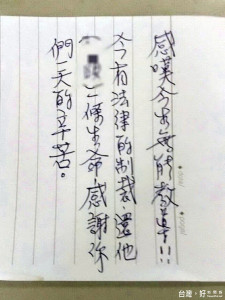 感嘆今生無能教導!!
今有法律的制裁、還他
一條生命感謝你
們一天的辛苦。
台灣好